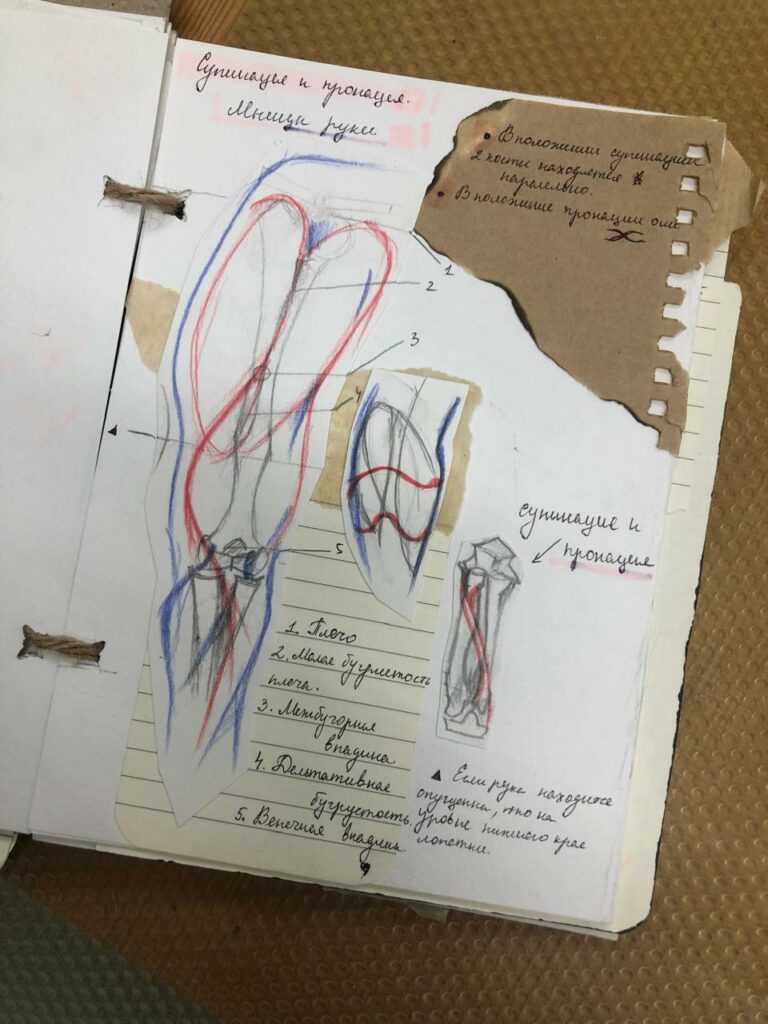 Супинация и пронация.
Мышцы руки
• В положении супинации
2 кости находятся
параллельно.
• В положение пронации они
1
2
3
4
5
▲
Супинация и
пронация
1. Плечо
2. Малая бугристость
плеча.
3. Межбугорная
впадина
4. Дельтативная
бугристость.
5. Венечная впадина
▲ Если рука находится
опущенна, то на
уровне нижнего края
лопатки.